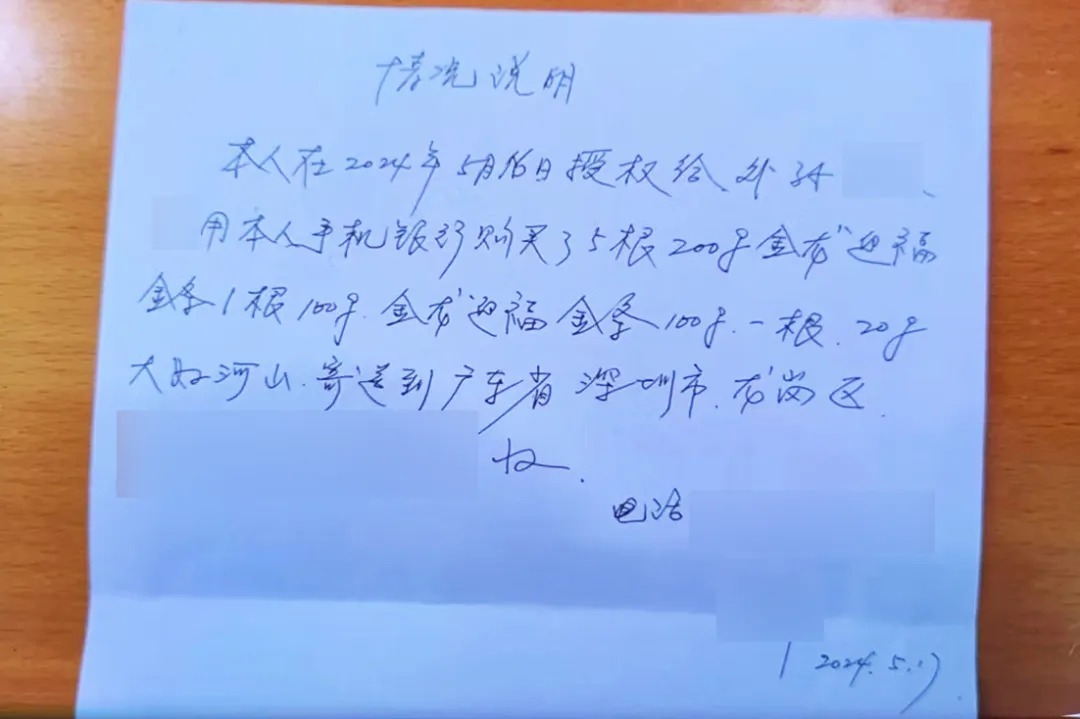 情况说明
本人在2024年5月16日授权给外孙
用本人手机银行购买了5根200g金龙迎福
金条1根100g.金龙迎福金条100g.一根.20g
大好河山.寄送到广东省深圳市.龙岗区.
收.
电话
2024.5.17